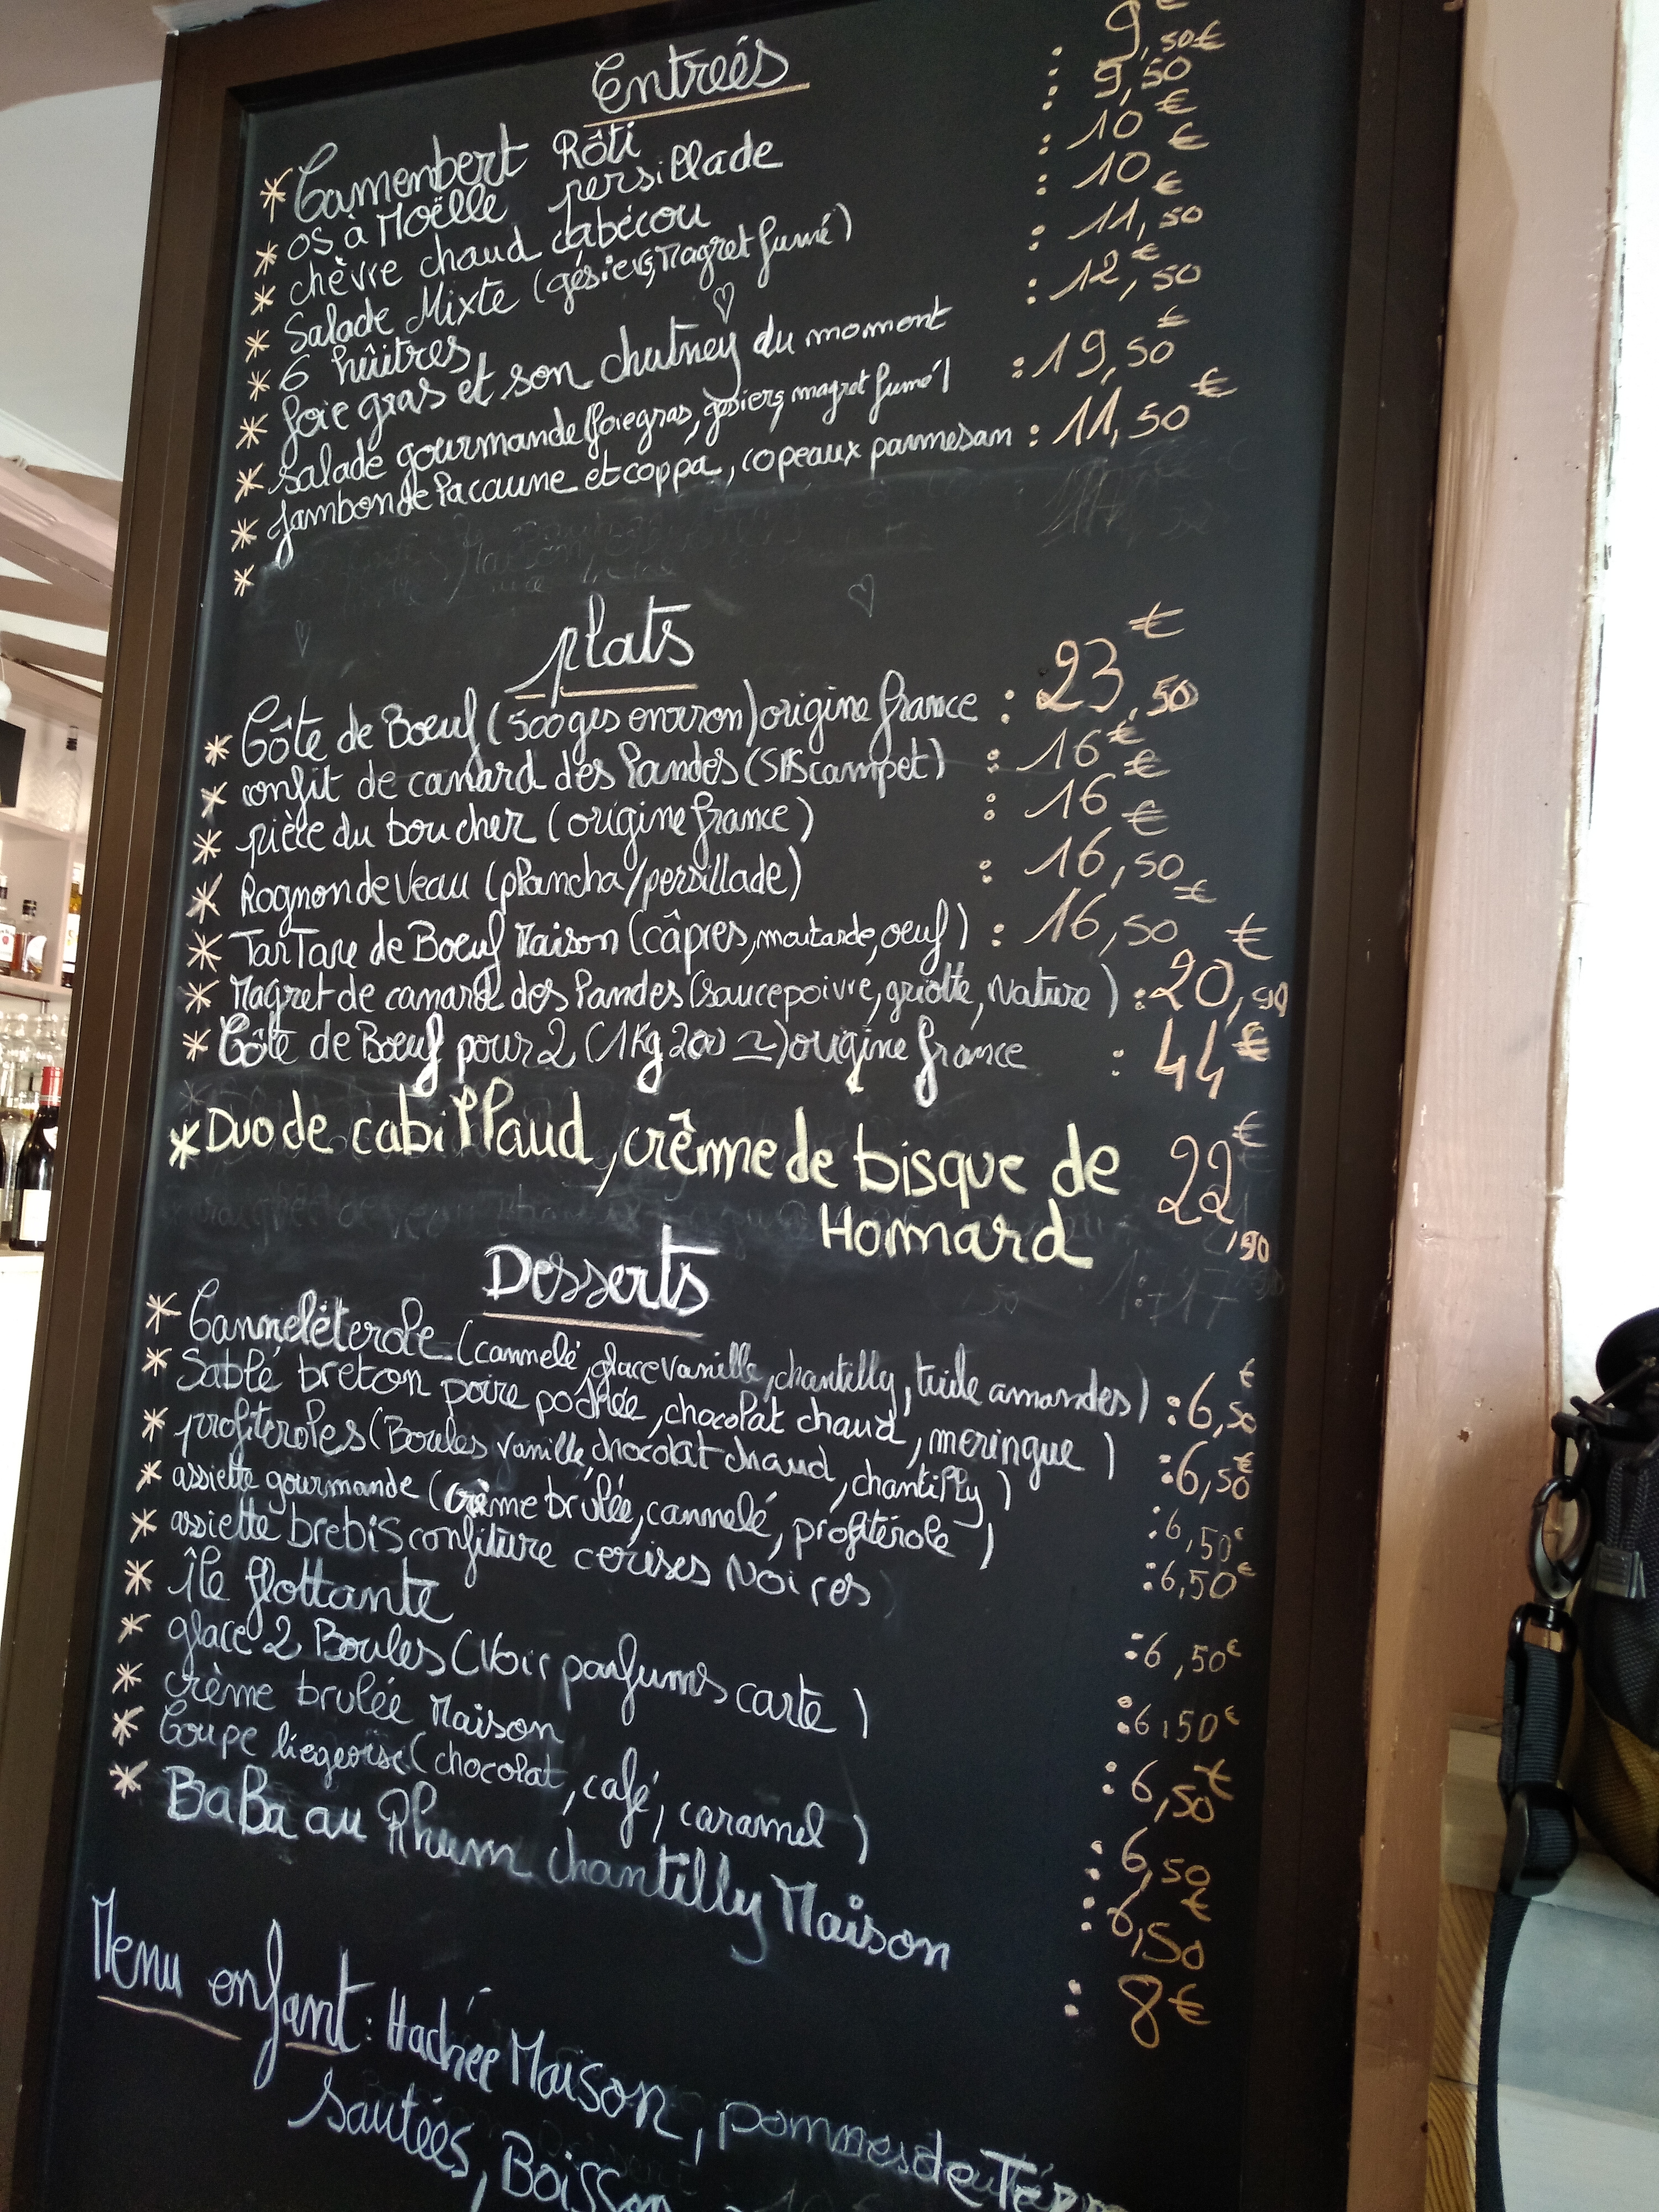 Entreés
* Camembert Rôti : 9,50€
* os à Moëlle persillade : 9,50€
* chèvre chaud cabécou : 10€
* Salade Mixte (gésiers, Magret fumé) : 10€
* 6 hûitres : 11,50€
* foie gras et son chutney du momont : 12,50€
* salade gourmande (foie gras, gésiers, magret fumé) : 19,50€
* Jambon de Lacaune et coppa, copeaux parmesan : 11,50€
*
plats
* Côte de Boeuf (500ges environ) origine france : 23,50€
* confit de canard des Landes ( : 16€
* pièce du boucher (origine france) : 16€
* Rognon de Veau (plancha/persillade) : 16,50€
* TarTare de Boeuf Maison (câpres, moutarde, oeuf) : 16,50€
* Magret de canard des Landes (sauce poivre, griotte, Nature) : 20,90€
* Côte de Boeuf pour 2 (1Kg 200 ~) origine france : 44€
* Duo de cabillaud, crême de bisque de 22,90€
Homard
Desserts
* Canneléterole (cannelé, glace vanille, chantilly, tuile amandes) : 6,50€
* Sablé breton poire pochée, chocolat chaud, meringue) : 6,50€
* profiteroles (Boules vanille, chocolat chaud, chantilly) : 6,50€
* assiette gourmande (crème brûlée, cannelé, profitérole) : 6,50€
* assiette brebis confiture cerises Noires : 6,50€
* île flottante : 6,50€
* glace 2 Boules (Voir parfums carte) : 6,50€
* crème brulée Maison : 6,50€
* Coupe liegeoise (chocolat, café, caramel) : 6,50€
* BaBa au Rhum chantilly Maison : 8€
Menu enfant : Hachée Maison, pommes de Terre
sautées, Boisson